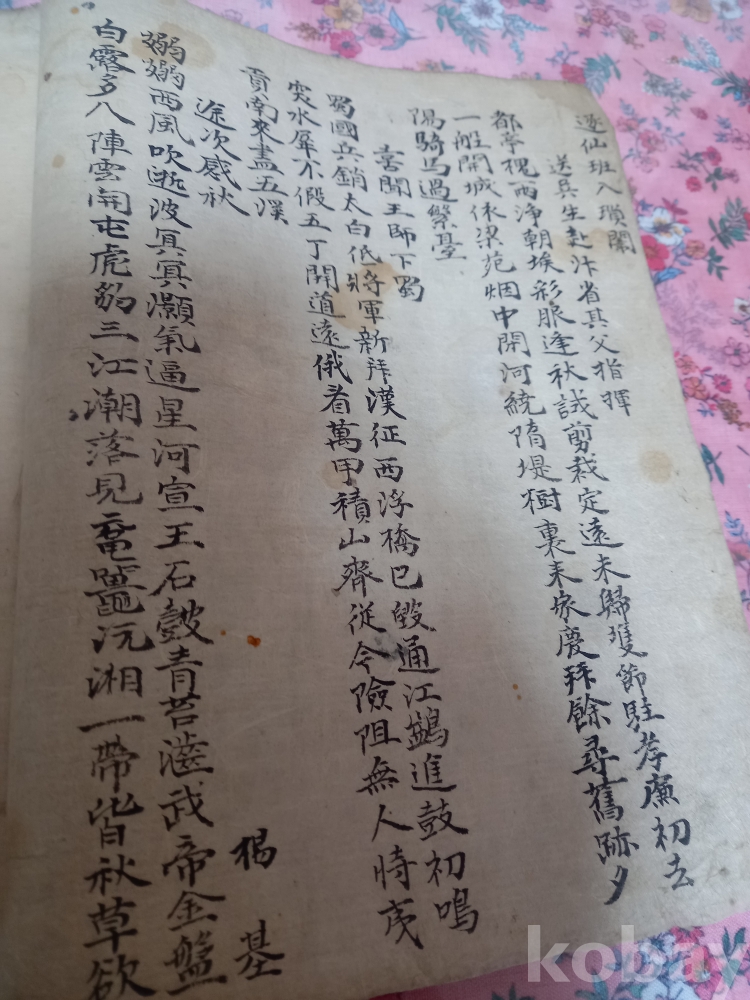 逐仙班入瑣闈
送兵生赴汴省其父指揮
都亭槐西淨朝埃彩服逢秋試剪裁定遠未歸雙節駐孝廉初去
一般開城依梁苑烟中開河繞隋堤樹裏来家慶拜餘尋舊跡夕
陽騎馬過繁臺
喜聞王師下蜀
蜀國兵銷太白低將軍新拜漢征西浮橋已毀通江鷁進鼓初鳴
突水犀不假五丁開道遠俄看萬甲積山齊從今險阻無人恃戎
貢南來盡五溪
途次感秋 楊基
嫋嫋西風吹逝波冥冥灝氣逼星河宣王石皷青苔澁武帝金盤
白露多八陣雲開屯虎豹三江潮落見黿鼉沅湘一帶皆秋草欲
kobay